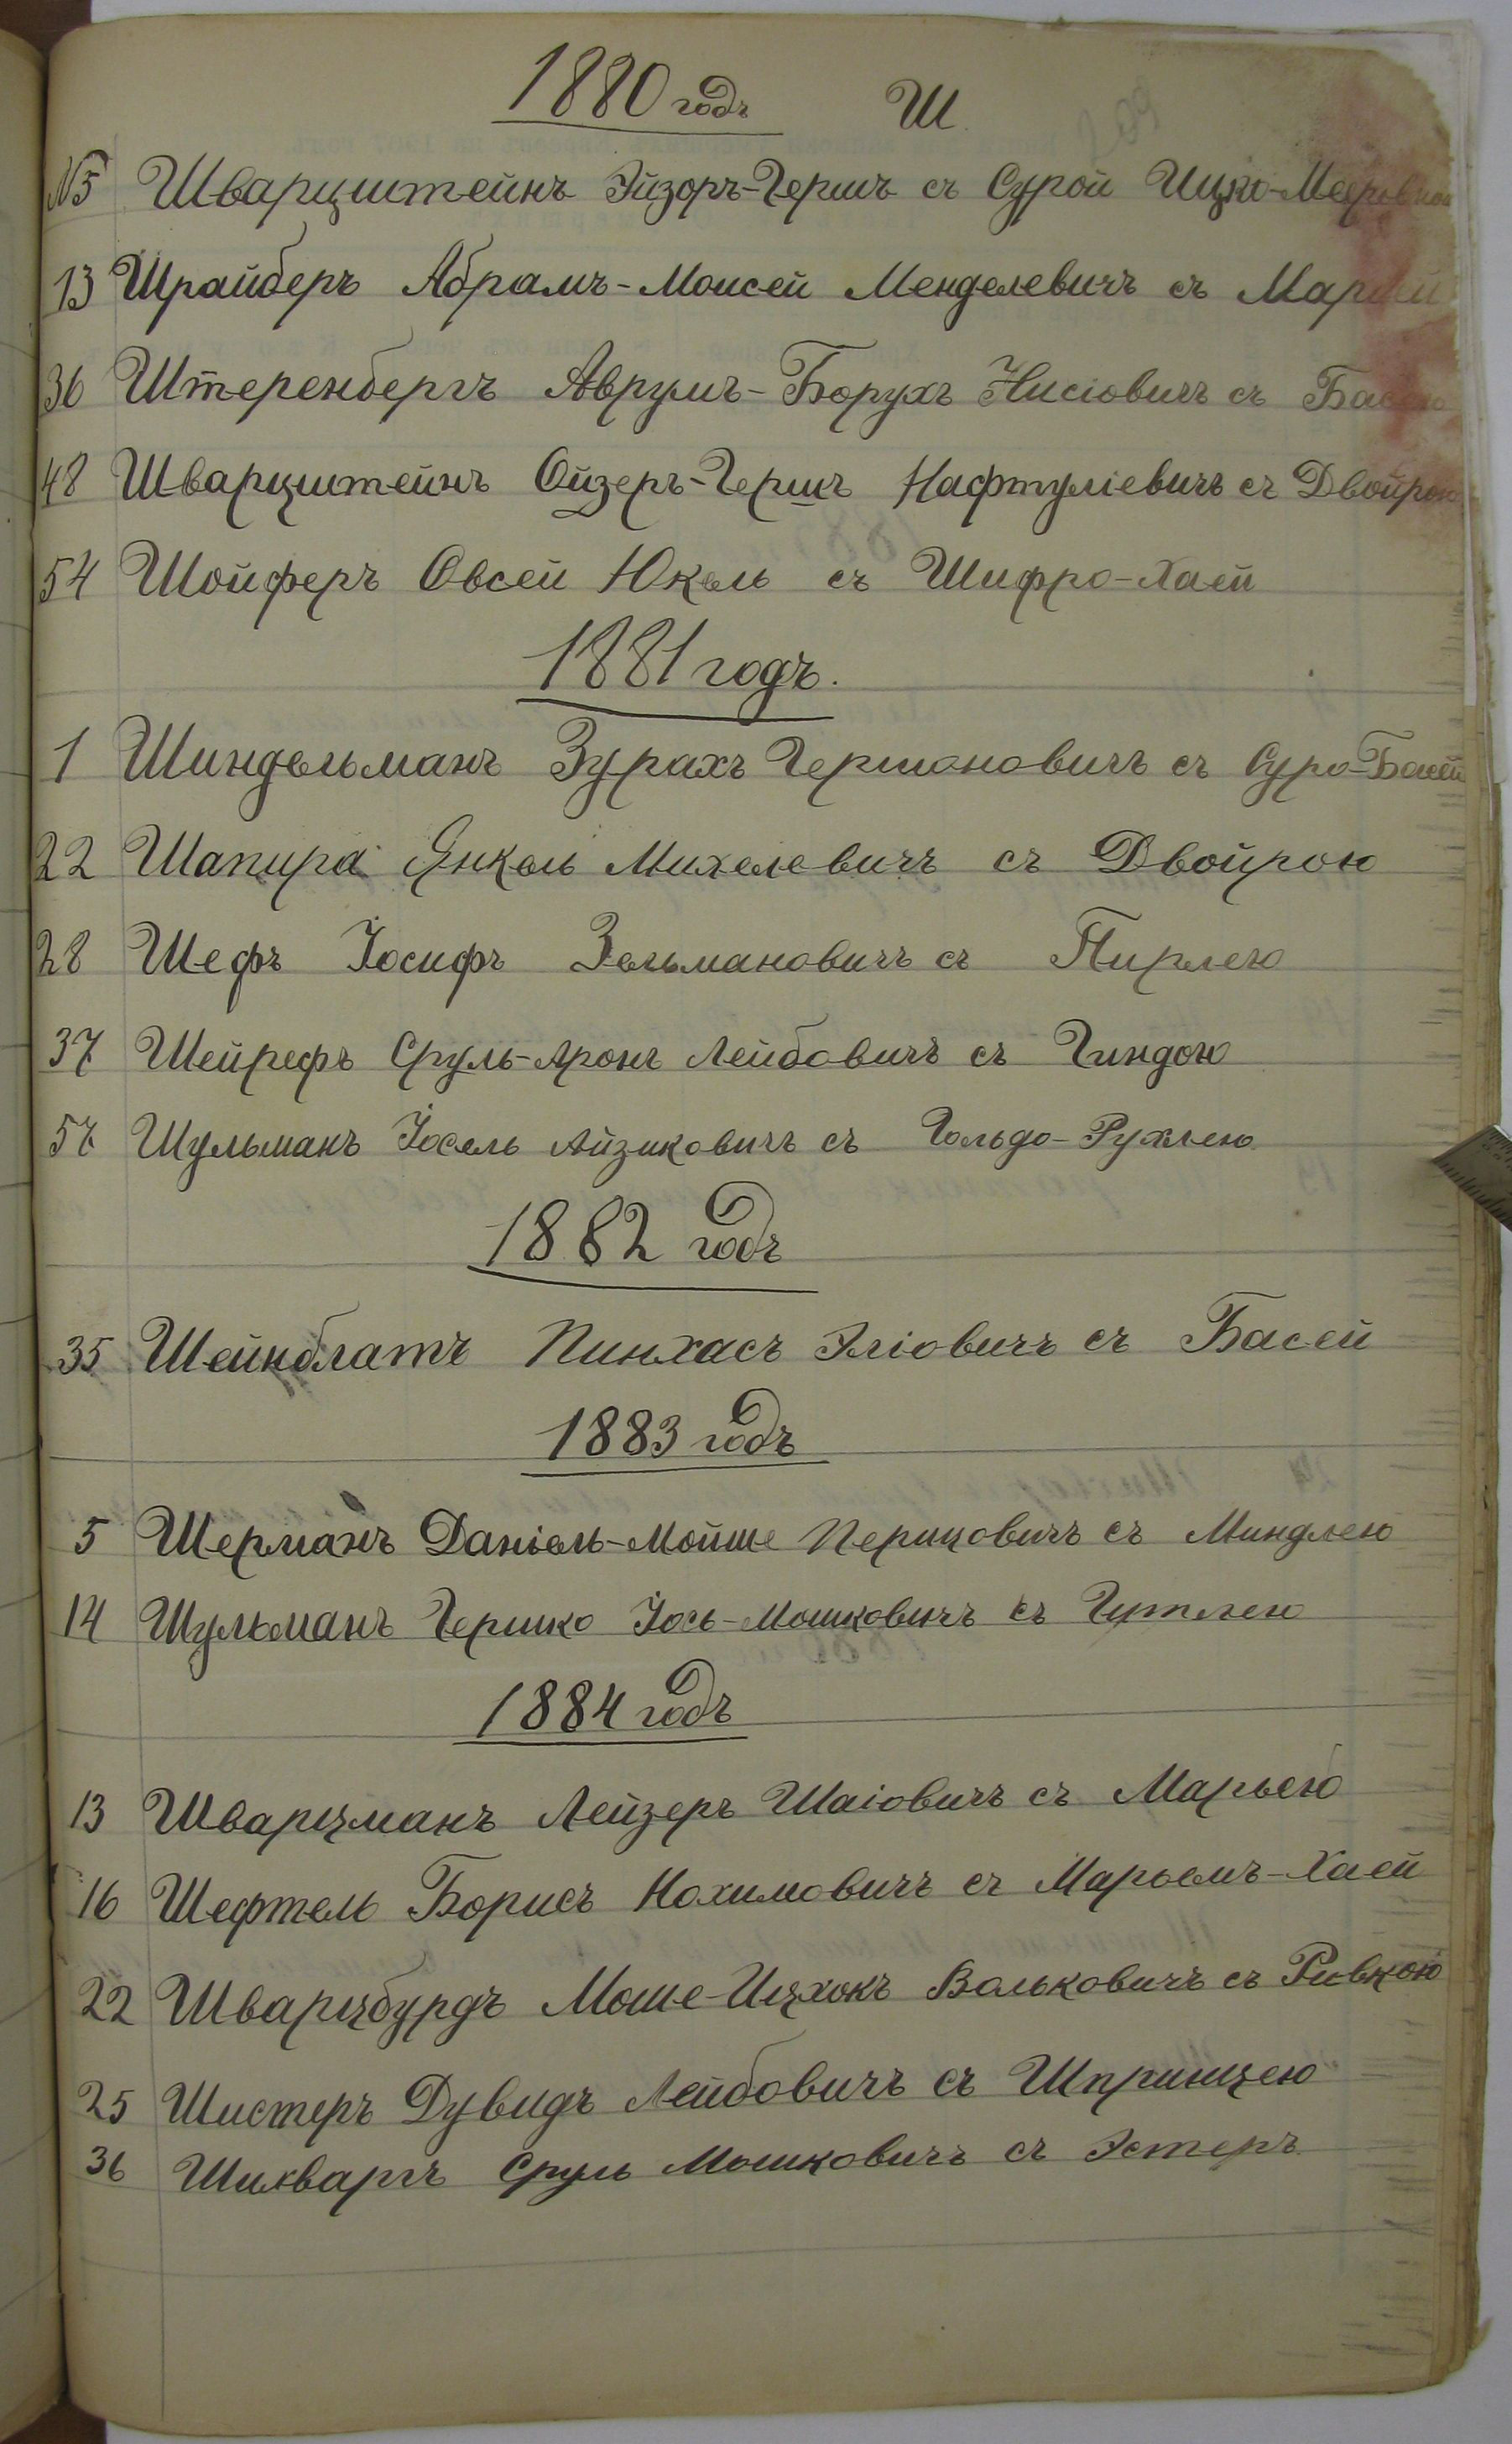 1880 годъ Ш.
№5 Шварцштейнъ Эйзоръ-Гершъ съ Сурой Ицко-Мееровной
13 Шрайберъ Абрамъ-Моисей Менделевичъ съ
36 Штеренбергъ Аврумъ-Борухъ Нисіовичъ съ Басею
48 Шварцштейнъ Ойзеръ-Гершъ Нафтуліевичъ съ Двойрою
54 Шойферъ Овсей Юкель съ Шифро-Хаей
1881 годъ.
1 Шиндельманъ Зурахъ Гершоновичъ съ Суро-Басей
22 Шапира Янкель Михелевичъ съ Двойрою
28 Шефъ Іосифъ Зельмановичъ съ Пирлею
37 Шейрефъ Сруль-Аронъ Лейбовичъ съ Гиндою
57 Шульманъ Іосель Айзиковичъ съ Гольдо-Рухлею
1882 годъ
35 Шейнблатъ Пинхасъ Эліовичъ съ Басей
1883 годъ
5 Шерманъ Даніель-Мойше Перицовичъ съ Миндлею
14 Шульманъ Гершко Іось-Мошковичъ съ Гитлею
1884 годъ
13 Шварцманъ Лейзеръ Шаіовичъ съ Марьею
16 Шефтель Борисъ Нохимовичъ съ Марьемъ-Хаей
22 Шварцбурдъ Моше-Ицхокъ Вольковичъ съ Ривкою
25 Шистеръ Дувидъ Лейбовичъ съ Шпринцею
36 Шихваргъ Сруль Мошковичъ съ Эстеръ